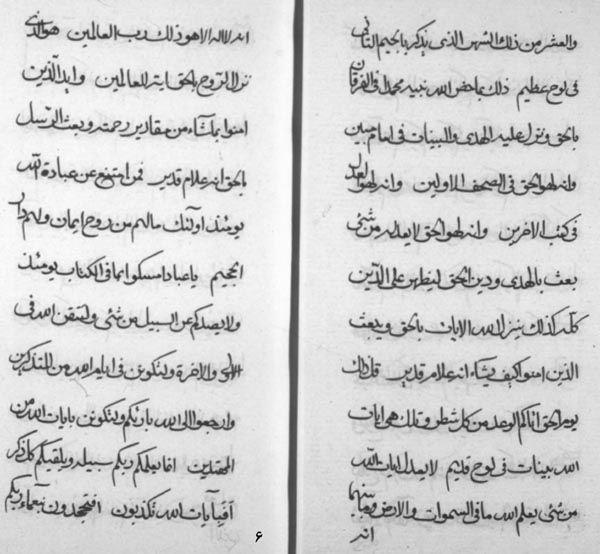 والعشر من ذلك الشهر الذی یذکر بالجیم الثانی
فی لوح عظیم ذلك ما خص الله نبیه محمدا فی الفرقان
بالحق ونزل علیه الهدی والبینات فی امام مبین
وانه لهو الحق فی الصحف الاولین وانه لهو العدل
فی کتب الاخرین وانه لهو الحق لا یعدله من شئ
بعث بالهدی ودین الحق لیظهره علی الدین
کله کذلك ینزل الله الایات بالحق ویبعث
الذین امنوا کیف یشاء انه علام قدیر قل ذلك
یوم الحق اتاکم الوعد من کل شطر وتلك هی ایات
الله بینات فی لوح قدیم لا یعدل ایات الله
من شئ یعلم الله ما فی السموات والارض وما بینهما
انه
انه لا اله الا هو ذلك رب العالمین هو الذی
نزل الروح بالحق ایة للعالمین واید الذین
امنوا بما شاء من مقادیر رحمته وبعث الرسل
بالحق انه علام قدیر فمن امتنع عن عبادة الله
یومئذ اولئك مالهم من روح ایمان ولهم دار
الجحیم یا عباد امسکوا بما فی الکتاب یومئذ
ولا یصدکم عن السبیل من شئ ولتتقن الله فی
الاولی والاخرة ولتکونن فی ایام الله من المتذکرین
وارجعوا الی الله بارئکم ولتکونن بایات الله من
المهتدین افا یعلمکم ربکم سبیله ویلقیکم کل ذکر
افبآیات الله تکذبون افتجحدون نعماء ربکم
۶